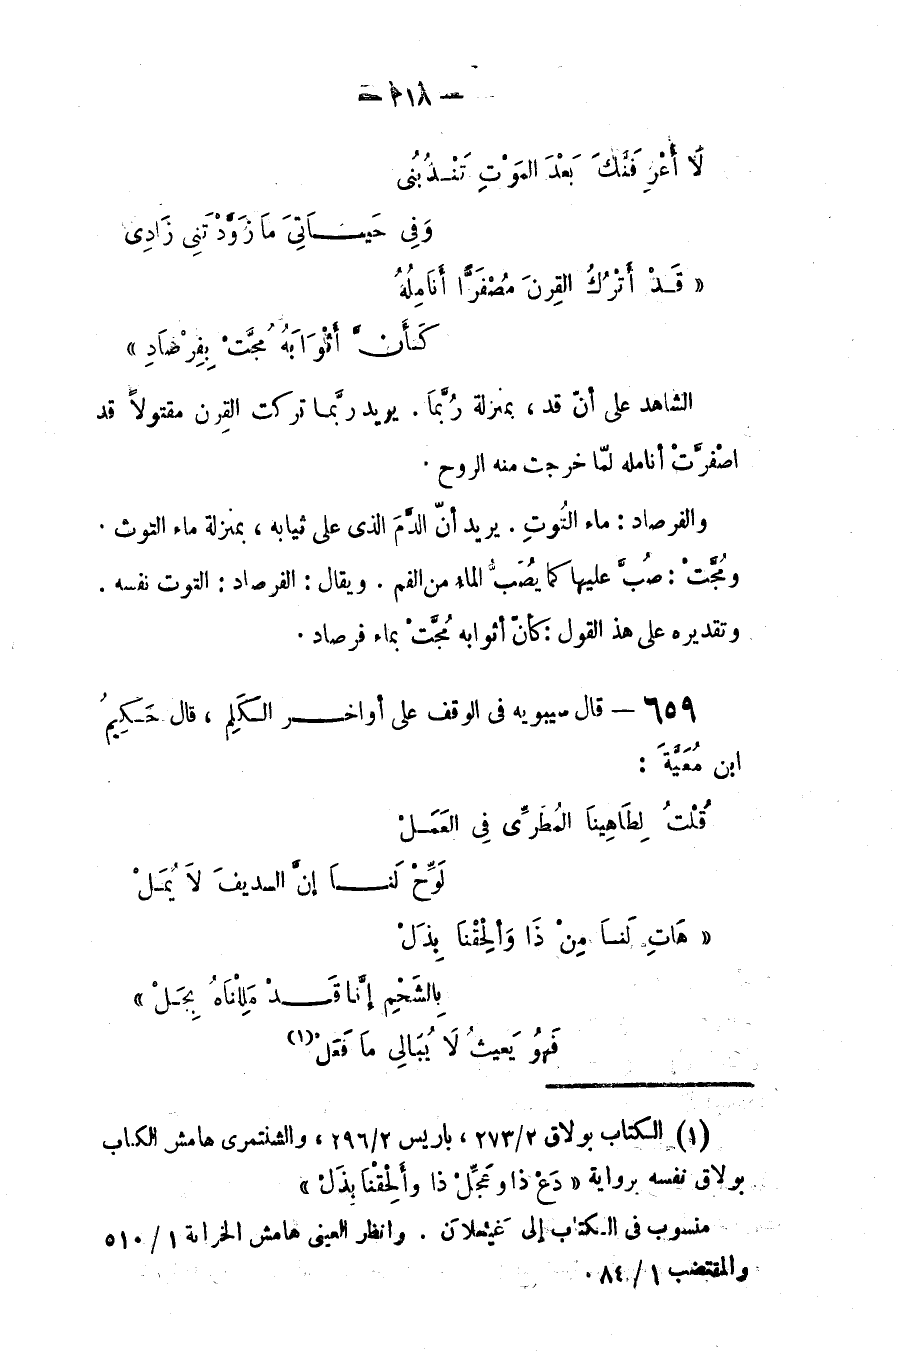 لَا أَعْرِفَنَّكَ بَعْدَ المَوْتِ تَنْـدُبُنى
وَفِى حَيَـاتِىَ مَا زَوَّدْتَنِى زَادِى
« قَـدْ أَتْرُكُ القِرنَ مُصْفَرًّا أَنَامِلُهُ
كَأَنَّ أَثْوَابَهُ مُجَّتْ بِفِرْصَادِ »
الشاهد على أنّ قد ، بمنزلة رُبَّمَا . يريد ربَّمـا تركت القِرن مقتولاً قد
اصْفرَّتْ أنامله لمّا خرجت منه الروح .
والفرصاد : ماء التُوتِ . يريد أنّ الدَّمَ الذى على ثيابه ، بمنزلة ماء التوث .
ومُجَّتْ : صُبَّ عليها كما يصُبُّ الماء من الفم . ويقال : الفرصاد : التوت نفسه .
وتقديره على هذ القول : كأنّ أثوابه مُجَّتْ بماء فرصاد .
٦٥٩ — قال سيبويه فى الوقف على أواخـر الـكَلِمِ ، قال حَـكِيمُ
ابن مُعَيَّةَ :
قُلْتُ لِطَاهِينَا المُطَرِّى فِى العَمَـلْ
لَوِّحْ لَنـا إنَّ السديفَ لاَ يُمَـلْ
« هَاتِ لَنـا مِنْ ذَا وَأَلْحِقْنَا بِذَلْ
بِالشَحْمِ إنَّا قَـدْ مَلِلْنَاهُ بِجَـلْ »
فَهْوُ يَعيثُ لَا يُبَالِى مَا فَعَلْ (١)
(١) الـكتاب بولاق ٢/٢٧٣ ، باريس ٢/٢٩٦ ، والشنتمرى هامش الكتاب
بولاق نفسه برواية « دَعْ ذا وعَجِّلْ ذا وأَلْحِقْنَا بِذَلْ »
منسوب فى الـكتاب إلى غَيْلان . وانظر العينى هامش الخزانة ١ / ٥١٠
والمقتضب ١ / ٨٤ .